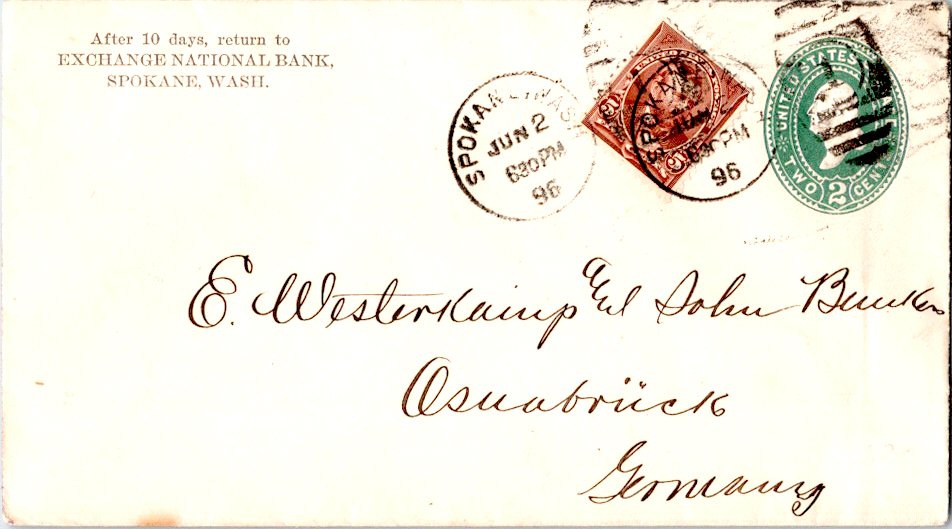 After 10 days, return to
EXCHANGE NATIONAL BANK,
SPOKANE, WASH.
SPOKANE, WASH
JUN 2
630 PM
96
SPOKANE
JUN
630 PM
96
UNITED STATES
TWO 2 CENTS
E. Westerkamp and John
Osnabrück
Germany